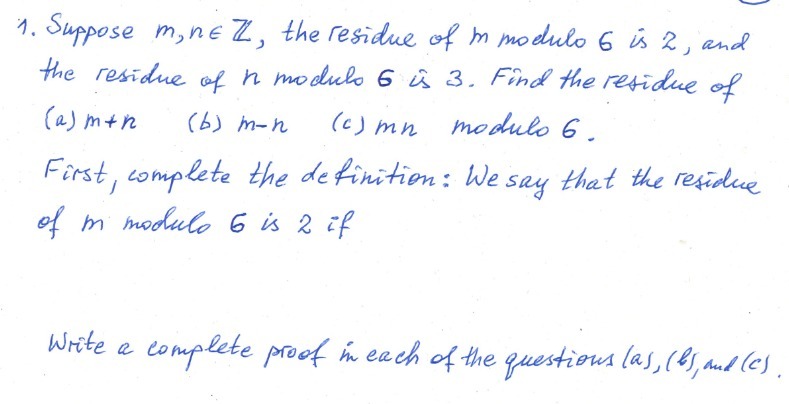 1. Suppose m, n ∈ ℤ, the residue of m modulo 6 is 2, and
the residue of n modulo 6 is 3. Find the residue of
(a) m+n (b) m-n (c) mn modulo 6.
First, complete the definition: We say that the residue
of m modulo 6 is 2 if
Write a complete proof in each of the questions (a), (b), and (c).